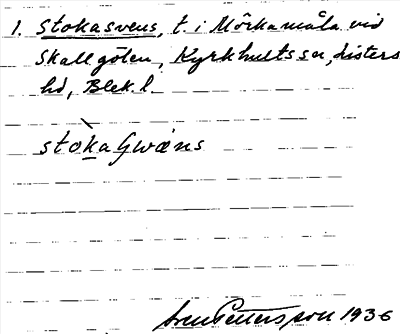 1. Stokasvens, t. i Mörkamåla vid
Skallgölen, Kyrkhults sn, Listers
hd, Blek. l.
stòkaʃwæns
Sven Pettersson 1936